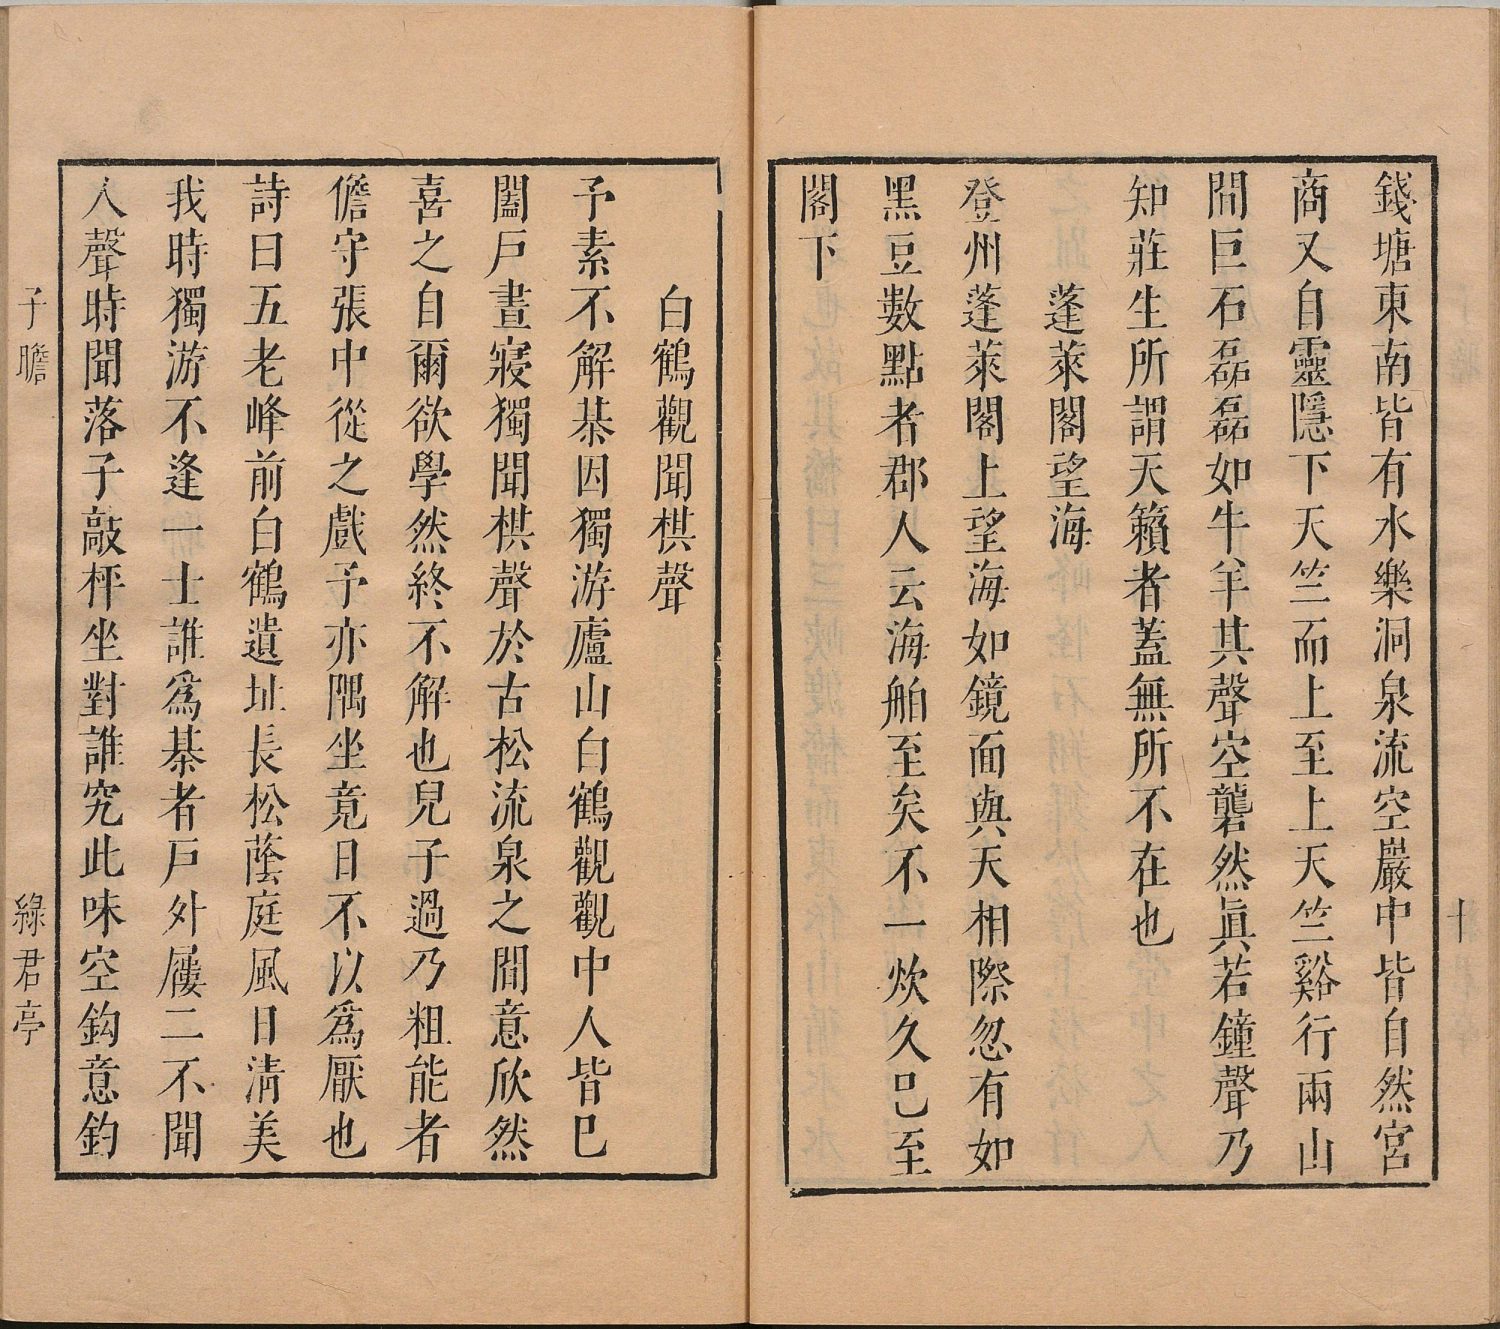 錢塘東南皆有水樂洞泉流空巖中皆自然宮
商又自靈隱下天竺而上至上天竺谿行兩山
間巨石磊磊如牛羊其聲空礱然眞若鐘聲乃
知莊生所謂天籟者蓋無所不在也
蓬萊閣望海
登州蓬萊閣上望海如鏡面與天相際忽有如
黑豆數點者郡人云海舶至矣不一炊久巳至
閣下
十
白鶴觀聞棋聲
予素不解棊因獨游廬山白鶴觀觀中人皆巳
闔戶晝寢獨聞棋聲於古松流泉之間意欣然
喜之自爾欲學然終不解也兒子過乃粗能者
儋守張中從之戲予亦隅坐竟日不以爲厭也
詩曰五老峰前白鶴遺址長松蔭庭風日淸美
我時獨游不逢一士誰爲棊者戶外屨二不聞
人聲時聞落子敲枰坐對誰究此味空鈎意釣
子瞻
綠君亭